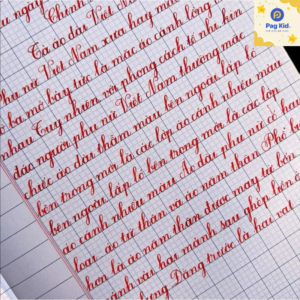 Pag Kid
Chính
Tà áo dài Việt Nam
phụ nữ Việt Nam xưa hay mặc
ba mớ bảy tức là mặc áo cánh lồng
nhau Tuy nhiên với phong cách tế nhị, kín
đáo người phụ nữ Việt Nam thường mặc
chiếc áo dài thâm màu bên ngoài lấp ló
bên trong mới là các lớp áo cánh nhiều màu
bên ngoài lấp ló bên trong mới là các lớp
áo cánh nhiều màu Áo dài phụ nữ có hai
loại áo tứ thân và áo năm thân Phổ
hơn là áo năm thân được may từ bốn
mảnh vải hai mảnh sau ghép
Đằng trước là hai vạt